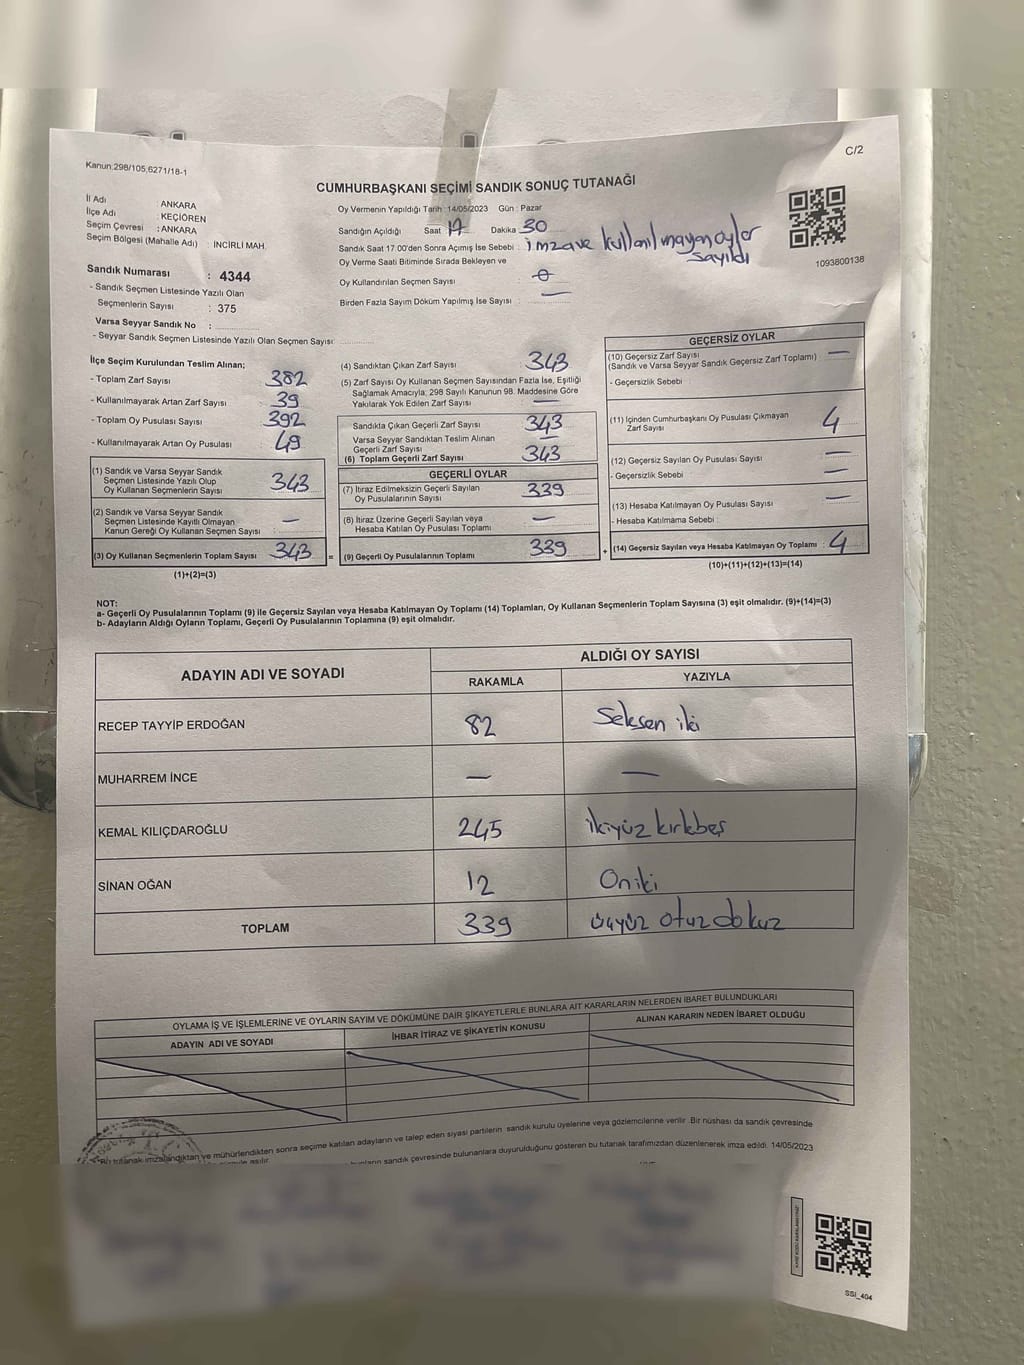 Kanun:298/105,6271/18-1
C/2
CUMHURBAŞKANI SEÇİMİ SANDIK SONUÇ TUTANAĞI
İl Adı : ANKARA
İlçe Adı : KEÇİÖREN
Seçim Çevresi : ANKARA
Seçim Bölgesi (Mahalle Adı) : INCİRLİ MAH.
Sandık Numarası : 4344
- Sandık Seçmen Listesinde Yazılı Olan
Seçmenlerin Sayısı : 375
Varsa Seyyar Sandık No :
- Seyyar Sandık Seçmen Listesinde Yazılı Olan Seçmen Sayısı:
Oy Vermenin Yapıldığı Tarih : 14/05/2023 Gün : Pazar
Sandığın Açıldığı Saat 17 Dakika 30
Sandık Saat 17.00'den Sonra Açımış İse Sebebi : imza ve kullanılmayan oylar
sayıldı
Oy Verme Saati Bitiminde Sırada Bekleyen ve
Oy Kullandırılan Seçmen Sayısı : 0
Birden Fazla Sayım Döküm Yapılmış İse Sayısı : —
1093800138
İlçe Seçim Kurulundan Teslim Alınan;
- Toplam Zarf Sayısı 382
- Kullanılmayarak Artan Zarf Sayısı 39
- Toplam Oy Pusulası Sayısı 392
- Kullanılmayarak Artan Oy Pusulası 49
(1) Sandık ve Varsa Seyyar Sandık
Seçmen Listesinde Yazılı Olup
Oy Kullanan Seçmenlerin Sayısı 343
(2) Sandık ve Varsa Seyyar Sandık
Seçmen Listesinde Kayıtlı Olmayan
Kanun Gereği Oy Kullanan Seçmen Sayısı —
(3) Oy Kullanan Seçmenlerin Toplam Sayısı 343
(1)+(2)=(3)
=
(4) Sandıktan Çıkan Zarf Sayısı 343
(5) Zarf Sayısı Oy Kullanan Seçmen Sayısından Fazla İse, Eşitliği
Sağlamak Amacıyla, 298 Sayılı Kanunun 98. Maddesine Göre
Yakılarak Yok Edilen Zarf Sayısı —
Sandıkta Çıkan Geçerli Zarf Sayısı 343
Varsa Seyyar Sandıktan Teslim Alınan
Geçerli Zarf Sayısı —
(6) Toplam Geçerli Zarf Sayısı 343
GEÇERLİ OYLAR
(7) İtiraz Edilmeksizin Geçerli Sayılan
Oy Pusulalarının Sayısı 339
(8) İtiraz Üzerine Geçerli Sayılan veya
Hesaba Katılan Oy Pusulası Toplamı —
(9) Geçerli Oy Pusulalarının Toplamı 339
+
GEÇERSİZ OYLAR
(10) Geçersiz Zarf Sayısı —
(Sandık ve Varsa Seyyar Sandık Geçersiz Zarf Toplamı)
- Geçersizlik Sebebi
(11) İçinden Cumhurbaşkanı Oy Pusulası Çıkmayan
Zarf Sayısı 4
(12) Geçersiz Sayılan Oy Pusulası Sayısı —
- Geçersizlik Sebebi —
(13) Hesaba Katılmayan Oy Pusulası Sayısı —
- Hesaba Katılmama Sebebi :
(14) Geçersiz Sayılan veya Hesaba Katılmayan Oy Toplamı : 4
(10)+(11)+(12)+(13)=(14)
NOT:
a- Geçerli Oy Pusulalarının Toplamı (9) ile Geçersiz Sayılan veya Hesaba Katılmayan Oy Toplamı (14) Toplamları, Oy Kullanan Seçmenlerin Toplam Sayısına (3) eşit olmalıdır. (9)+(14)=(3)
b- Adayların Aldığı Oyların Toplamı, Geçerli Oy Pusulalarının Toplamına (9) eşit olmalıdır.
ADAYIN ADI VE SOYADI
ALDIĞI OY SAYISI
RAKAMLA YAZIYLA
RECEP TAYYİP ERDOĞAN 82 Seksen iki
MUHARREM İNCE — —
KEMAL KILIÇDAROĞLU 245 ikiyüz kırkbeş
SİNAN OĞAN 12 Oniki
TOPLAM 339 üçyüz otuz dokuz
OYLAMA İŞ VE İŞLEMLERİNE VE OYLARIN SAYIM VE DÖKÜMÜNE DAİR ŞİKAYETLERLE BUNLARA AİT KARARLARIN NELERDEN İBARET BULUNDUKLARI
ADAYIN ADI VE SOYADI
İHBAR İTİRAZ VE ŞİKAYETİN KONUSU
ALINAN KARARIN NEDEN İBARET OLDUĞU
Bu tutanak imzalandıktan ve mühürlendikten sonra seçime katılan adayların ve talep eden siyasi partilerin sandık kurulu üyelerine veya gözlemcilerine verilir. Bir nüshası da sandık çevresinde
asılır. sandık çevresinde bulunanlara duyurulduğunu gösteren bu tutanak tarafımızdan düzenlenerek imza edildi. 14/05/2023
SSI_404